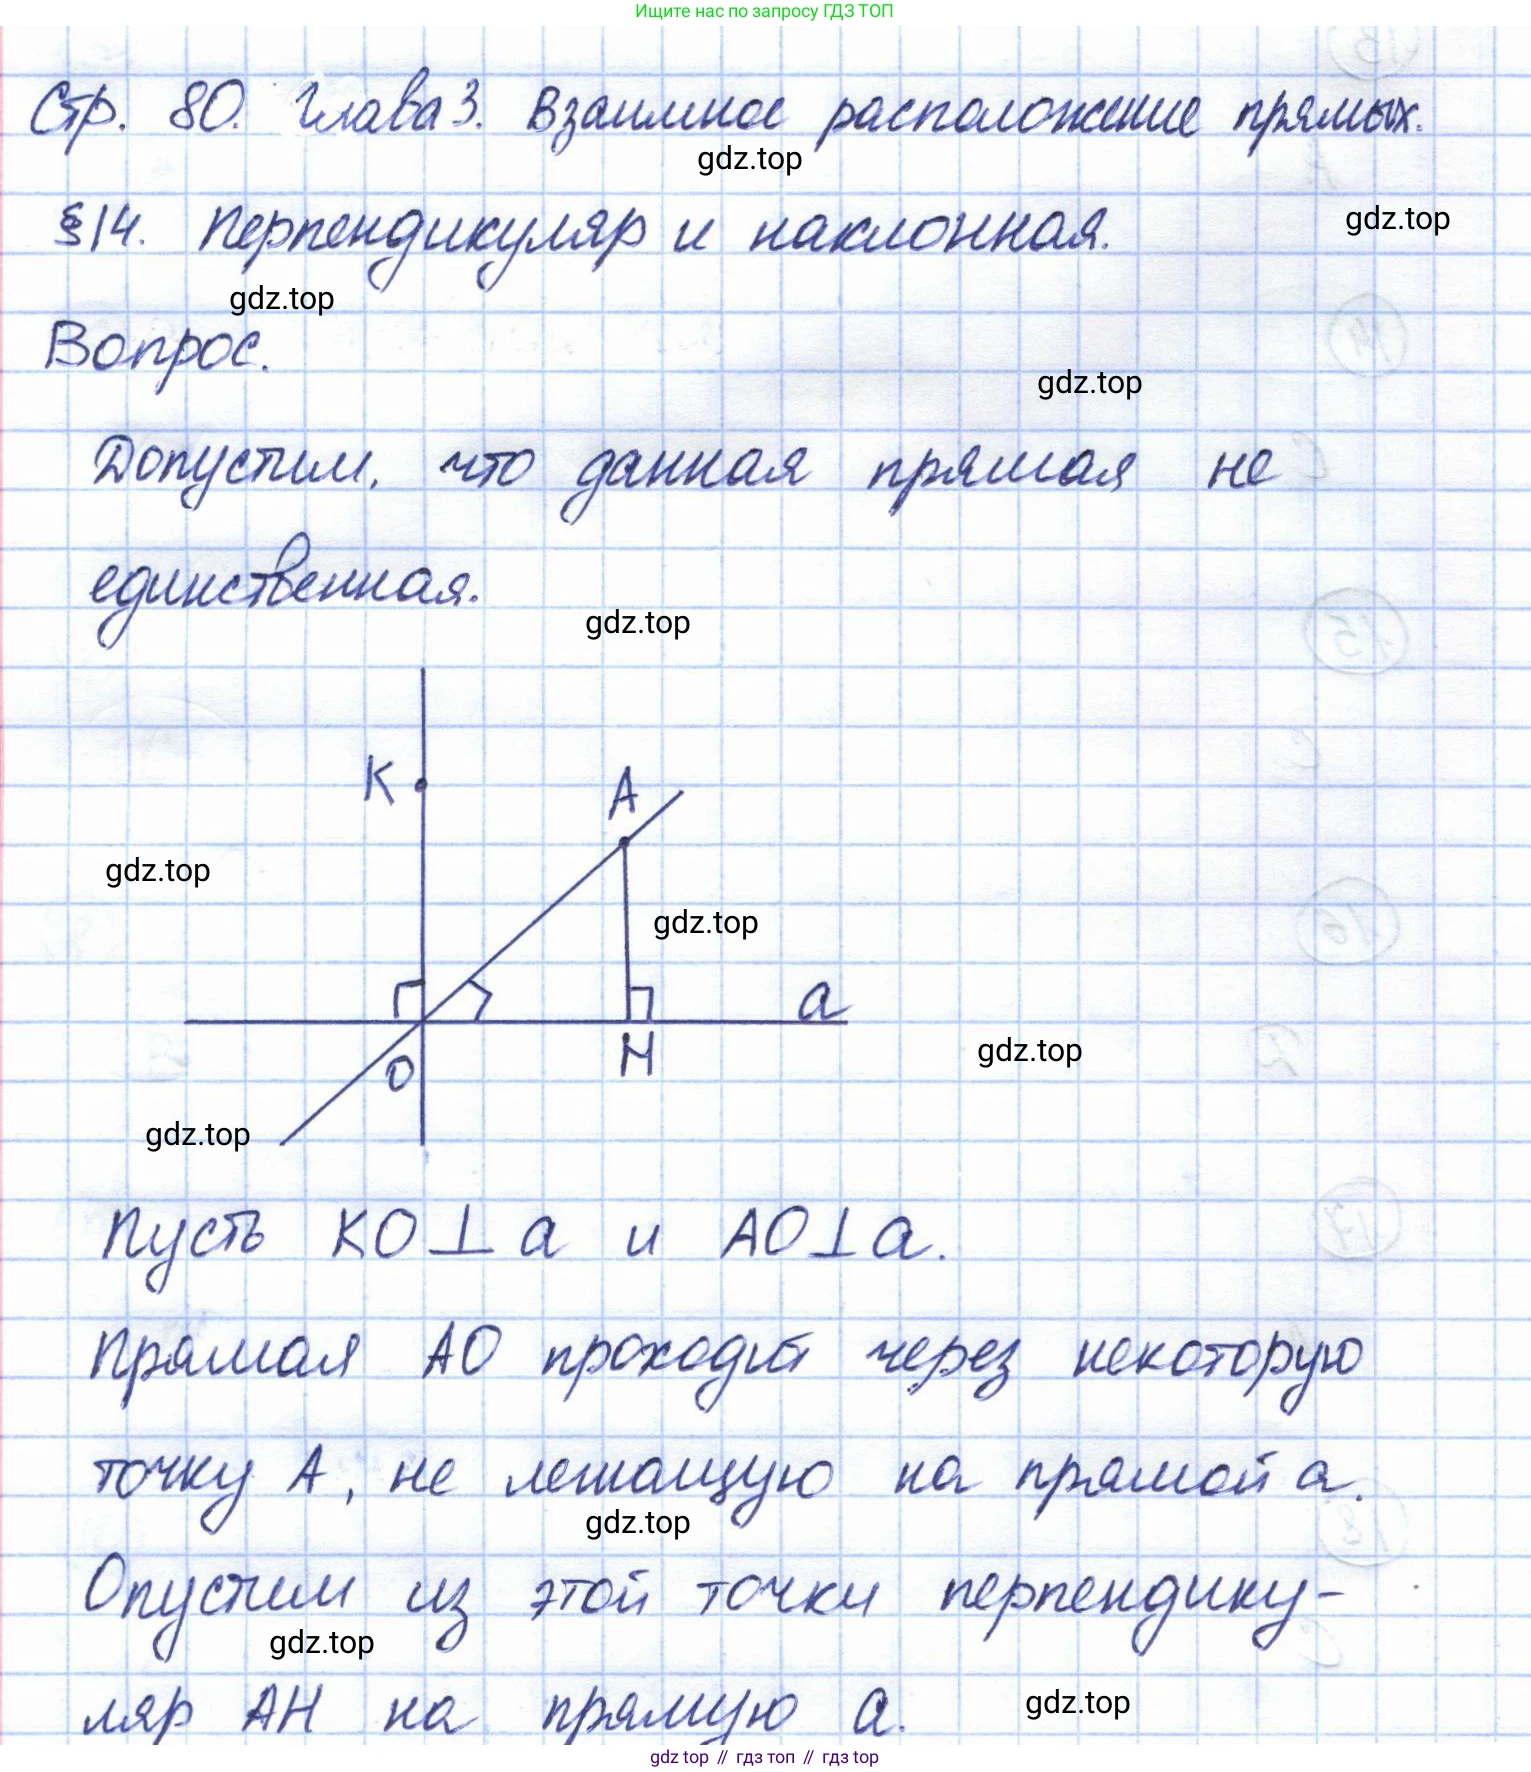 Ищите нас по запросу ГДЗ ТОП
Стр. 80. Глава 3. Взаимное расположение прямых.
gdz.top
§14. Перпендикуляр и наклонная.
gdz.top
gdz.top
Вопрос.
gdz.top
Допустим, что данная прямая не
единственная.
gdz.top
К
А
gdz.top
gdz.top
а
О
Н
gdz.top
gdz.top
Пусть КО⊥а и АО⊥а.
Прямая АО проходит через некоторую
точку А, не лежащую на прямой а.
gdz.top
Опустим из этой точки перпендику-
gdz.top
ляр АН на прямую а.
gdz.top
gdz top // гдз топ // гдз top